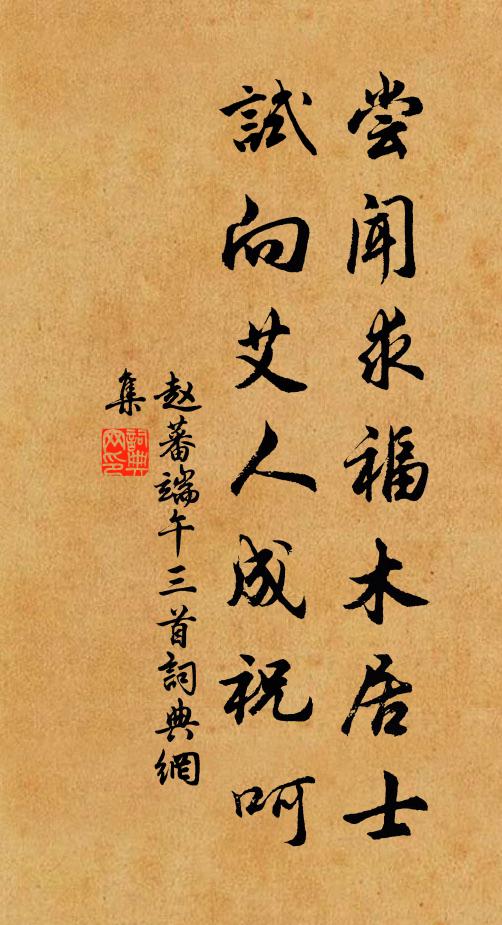 尝闻求福木居士
試向艾人成祝呵
赵蕃端午三首詞典網
集
詞典
网印